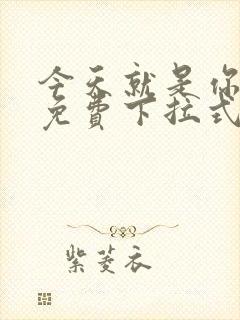 今天就是你
免费下拉式
紫菱衣